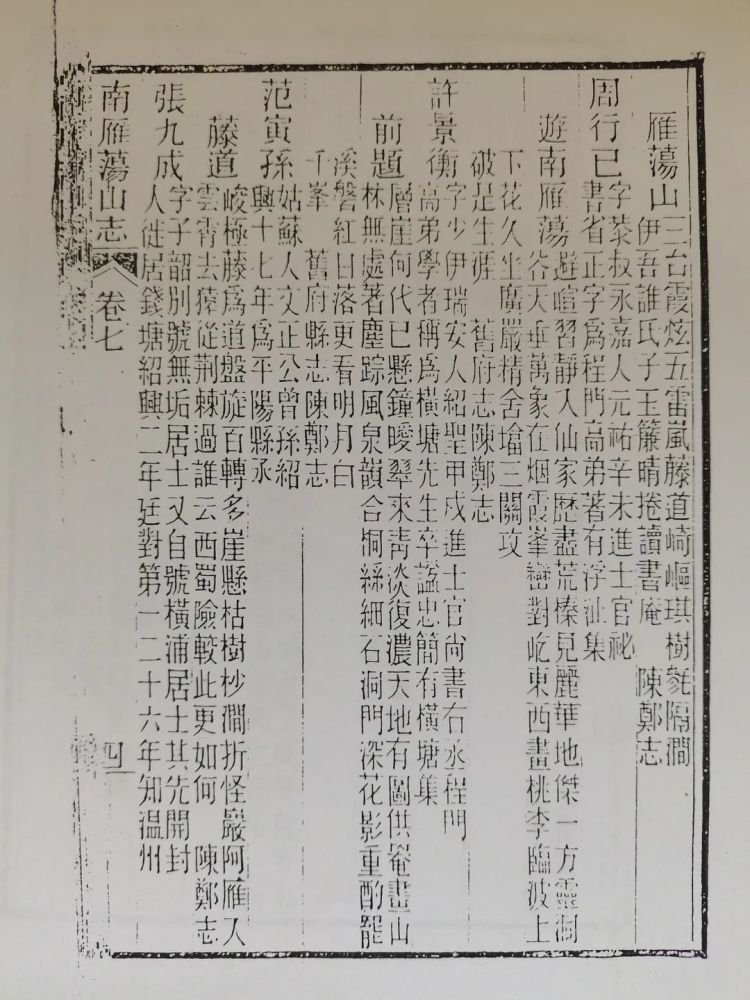 雁蕩山 三台霞炫五雷嵐藤道崎嶇琪樹毿隔澗
伊吾誰氏子玉簾晴捲讀書庵 陳鄭志
周行己 字恭叔永嘉人元祐辛未進士官祕
書省正字爲程門高弟著有浮沚集
遊南雁蕩 遊喧習靜入仙家歷盡荒榛見麗華地傑一方靈洞
谷天垂萬象在烟霞峯巒對屹東西畫桃李臨波上
下花久坐廣嚴精舍壋三關攻
破是生涯 舊府志陳鄭志
許景衡 字少伊瑞安人紹聖甲戍進士官尚書右丞程門
高弟學者稱爲橫塘先生卒諡忠簡有橫塘集
前題 層崖何代已懸鐘曖翠來靑淡復濃天地有圖供菴畫山
林無處著塵踪風泉韻合桐絲細石洞門深花影重酌龍
溪磐紅日落更看明月白
千峯 舊府縣志陳鄭志
范寅孫 姑蘇人文正公曾孫紹
興十七年爲平陽縣丞
藤道 峻極藤爲道盤旋百轉多崖懸枯樹杪澗折怪巖阿雁入
雲霄去猿從荆棘過誰云西蜀險較此更如何 陳鄭志
張九成 字子韶別號無垢居士又自號橫浦居士其先開封
人徙居錢塘紹興二年廷對第一二十六年知温州
南雁蕩山志 卷七 四